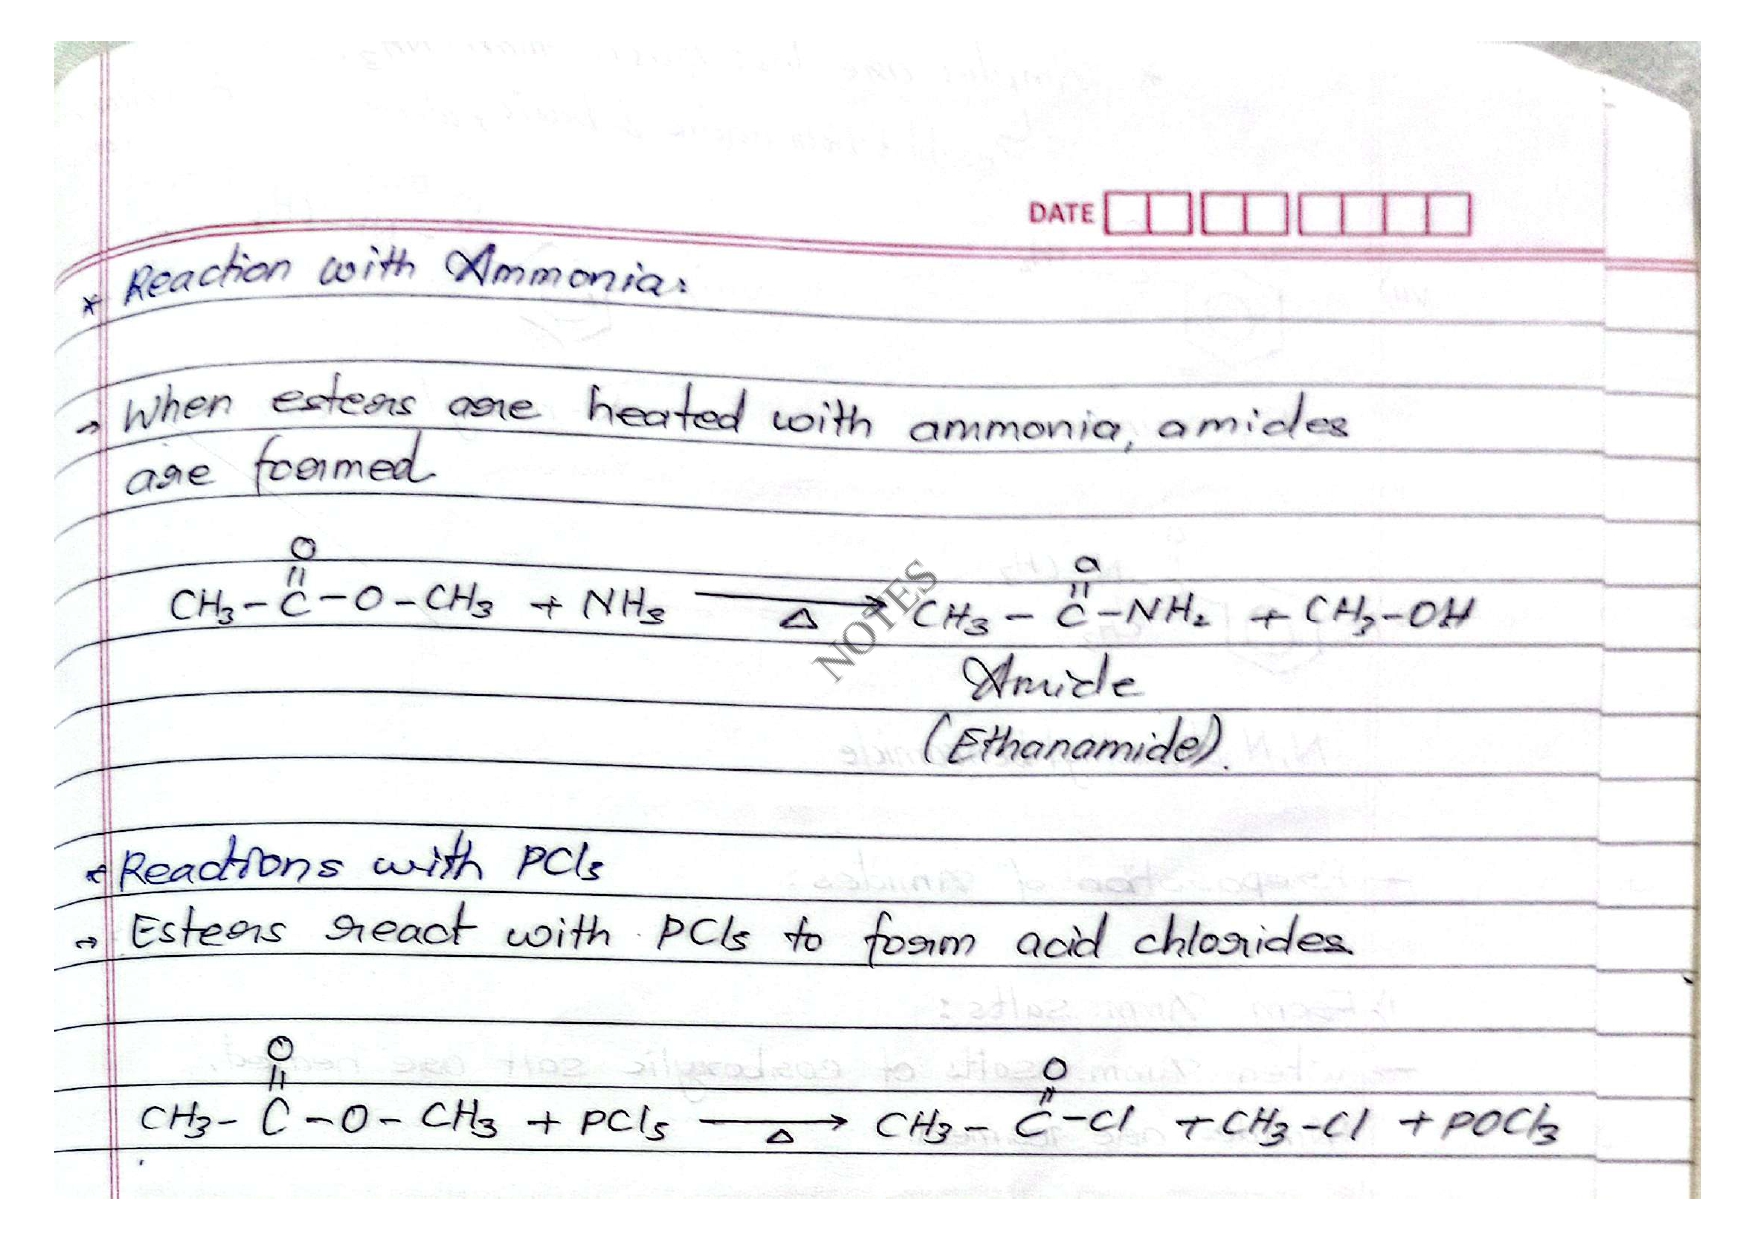 DATE
* Reaction with Ammonia:
→ When esters are heated with ammonia, amides
are formed
O O
|| ||
CH₃-C-O-CH₃ + NH₃ →Δ CH₃-C-NH₂ + CH₃-OH
NOTES
Amide
(Ethanamide).
* Reactions with PCl₅
→ Esters react with PCl₅ to form acid chlorides.
O O
|| ||
CH₃-C-O-CH₃ + PCl₅ →Δ CH₃-C-Cl + CH₃-Cl + POCl₃